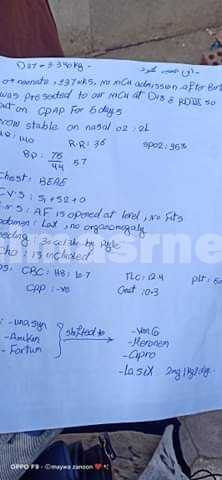 D27 - 3.340 kg -
pt neonate , +37 wks, no NICU admission after Birth
was presented to our NICU at D13 & RDIII so
put on CPAP For 5 days
now stable on nasal O2 : 2L
HR : 140 R.R : 36 SPO2 : 96%
BP : 76/44 57
Chest : BEAE
CVS : S1 + S2 + 0
CNS : AF is opened at level , No Fits
Abdomen : Lax , no organomegaly
Feeding : 30 cc/3h by Ryle
Echo : is included
CBC : HB : 10.7 TLC : 12.4 plt :
CRP : -ve Creat : 0.3
: - unasyn
- Amikin
- Fortum
shifted to
- Meronem
- Cipro
- Lasix 2mg/kg/day
OPPO F9 · ©maywa zanoon